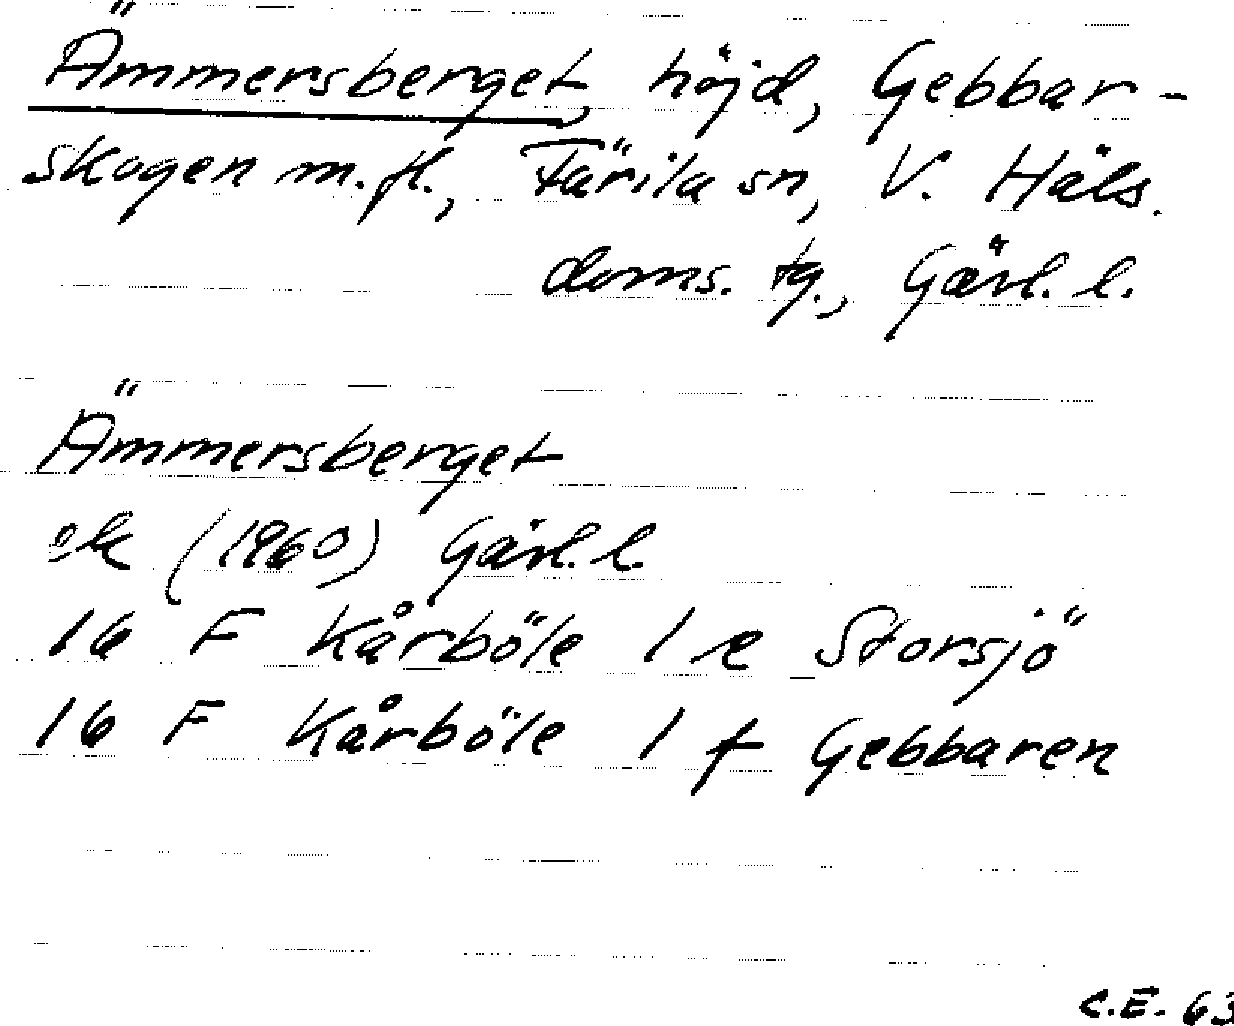 Ämmersberget, höjd, Gebbar-
skogen m.fl., Färila sn, V. Häls.
doms. tg., Gävl. l.
Ämmersberget
ek (1960) Gävl. l.
16 F Kårböle 1 e Storsjö
16 F Kårböle 1 f Gebbaren
C.E. 63